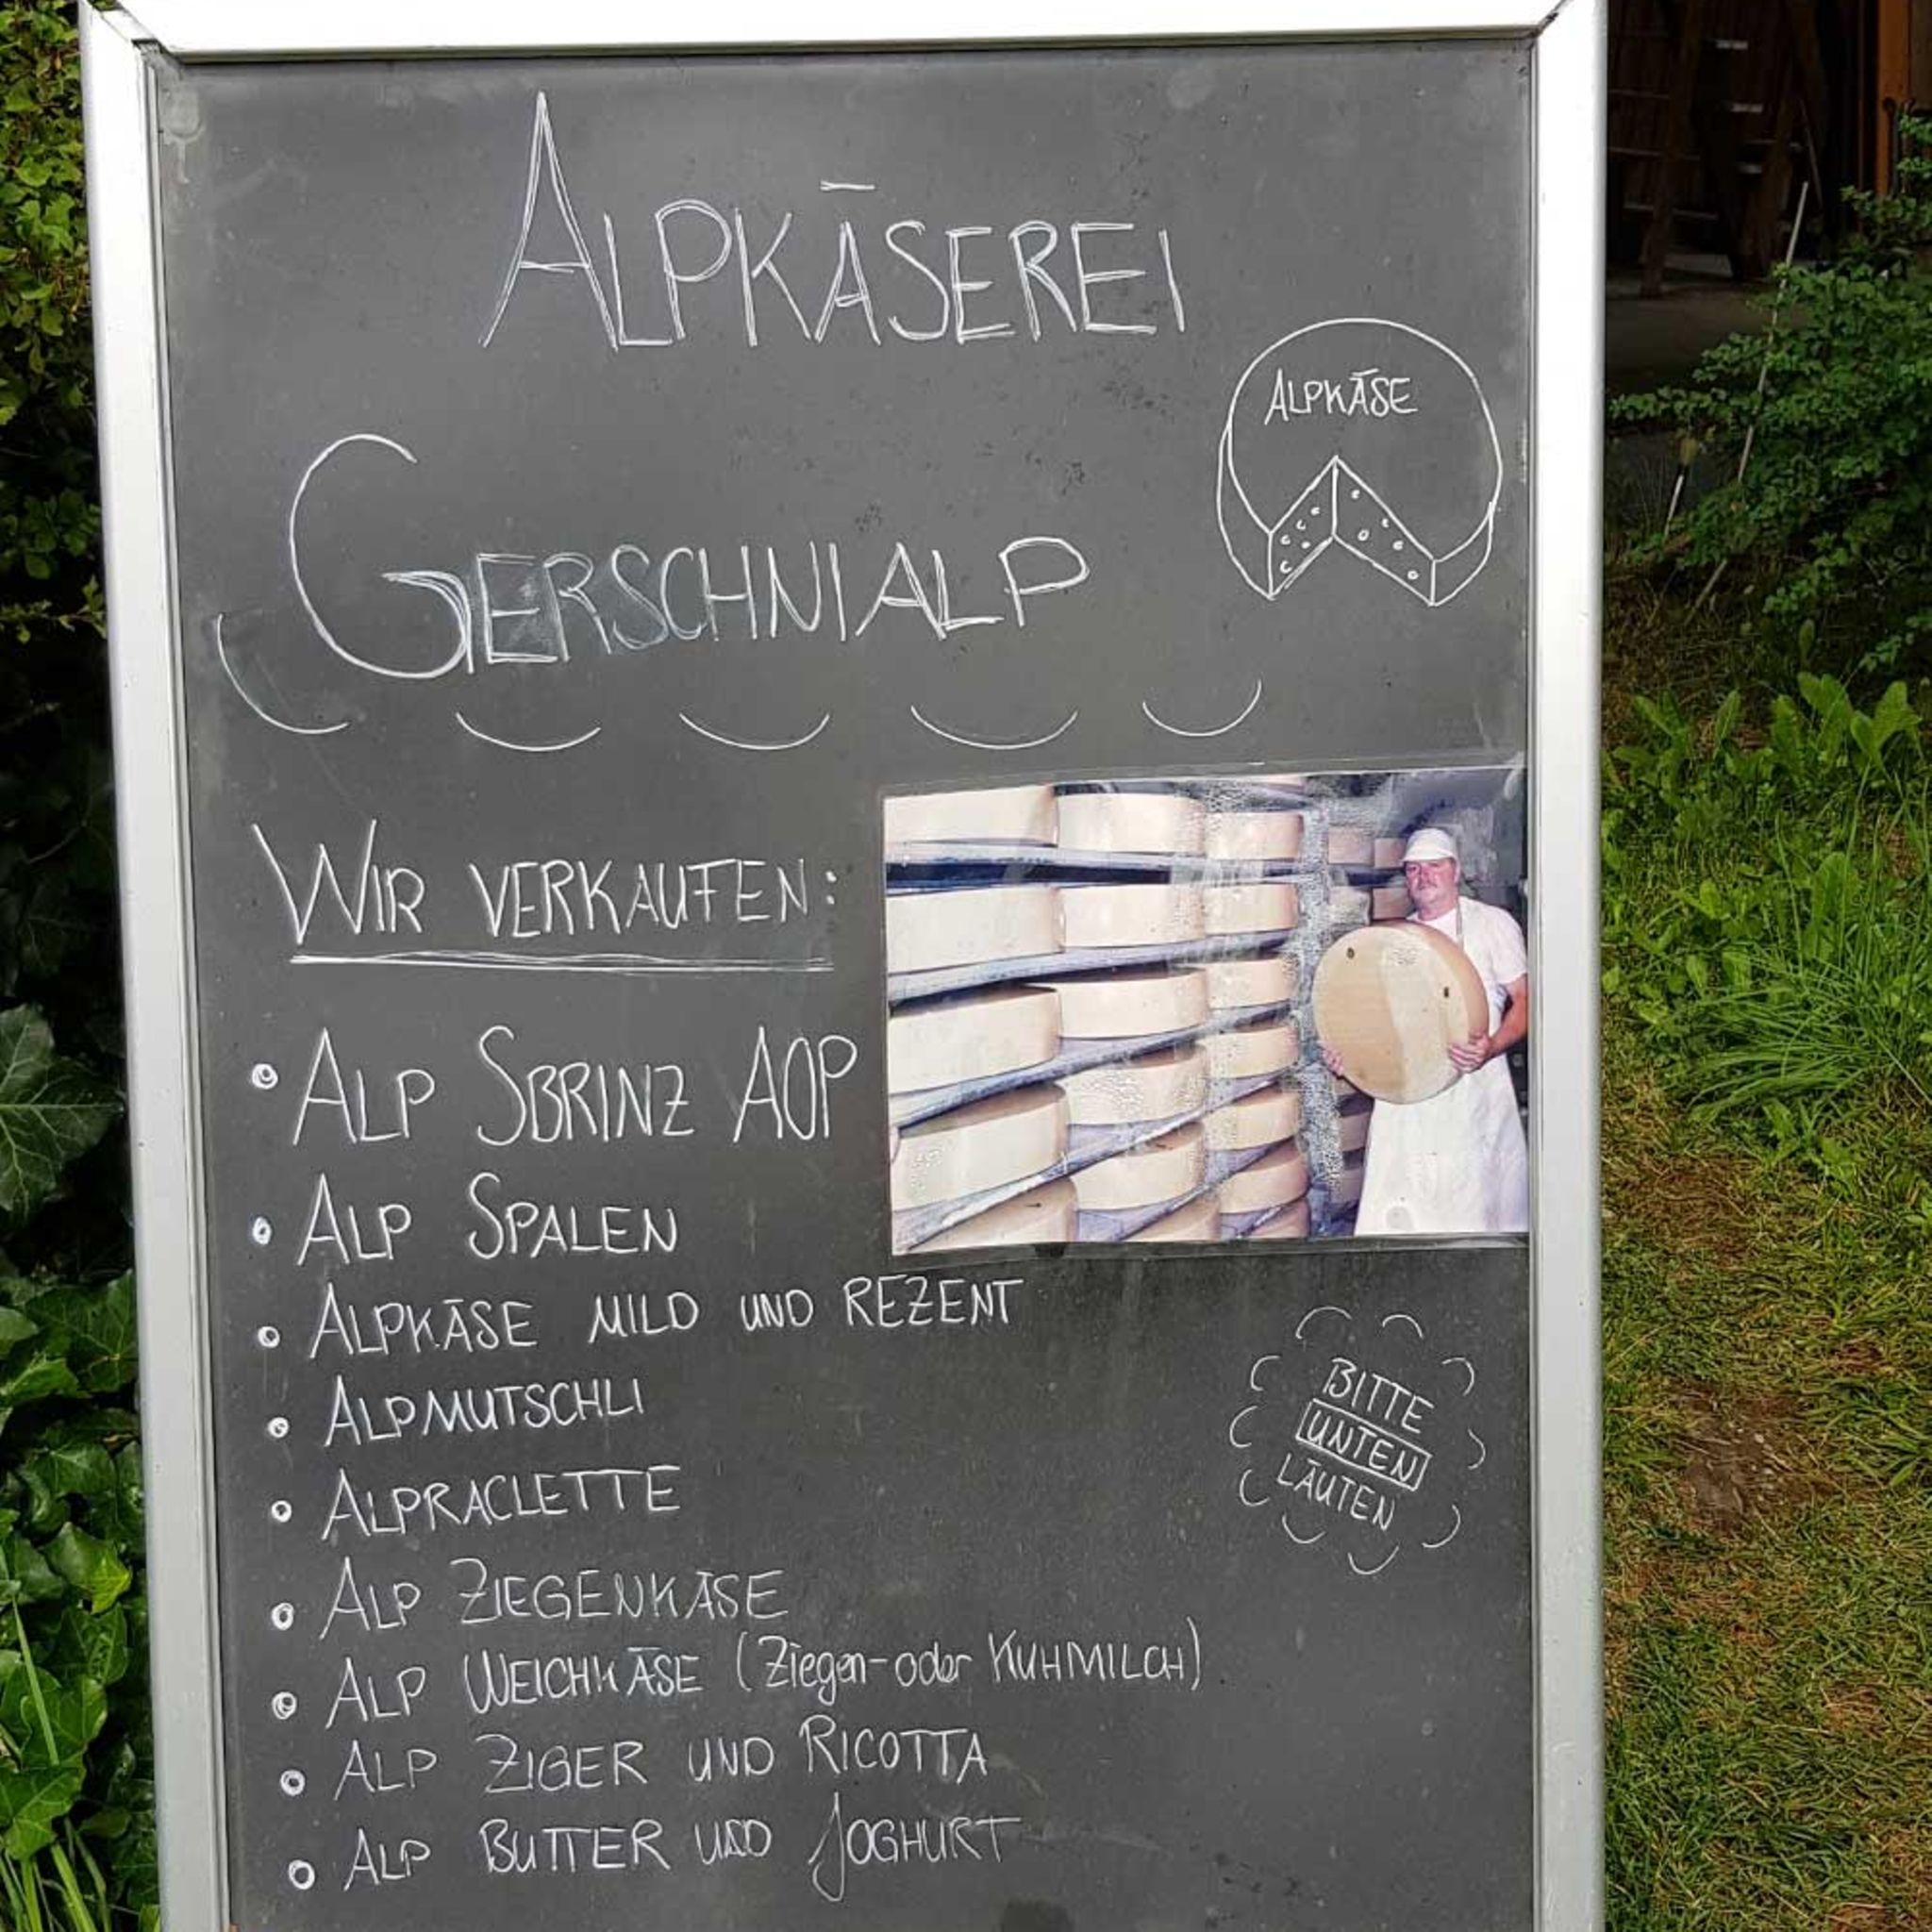 ALPKÄSEREI
ALPKÄSE
GERSCHNIALP
WIR VERKAUFEN:
ALP SBRINZ AOP
ALP SPALEN
ALPKÄSE MILD UND REZENT
ALPMUTSCHLI
ALPRACLETTE
ALP ZIEGENKÄSE
ALP WEICHKÄSE (Ziegen-oder KUHMILCH)
ALP ZIGER UND RICOTTA
ALP BUTTER UND JOGHURT
BITTE
UNTEN
LÄUTEN